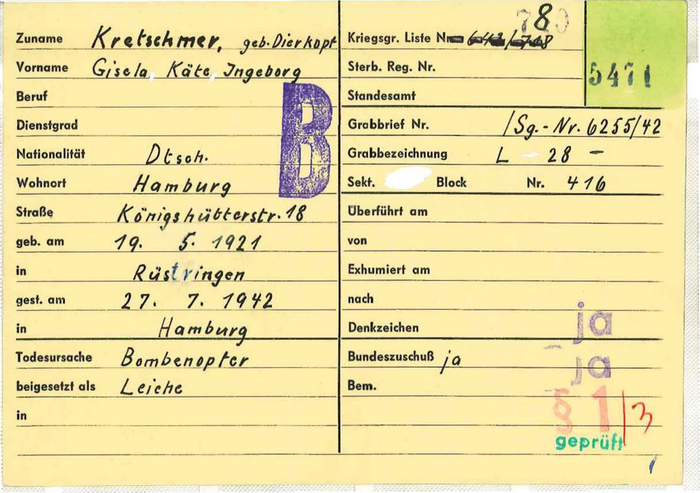 Zuname Kretschmer, geb. Dierkopf
Vorname Gisela, Käte, Ingeborg
Beruf
Dienstgrad
Nationalität Dtsch.
Wohnort Hamburg
Straße Königshütterstr. 18
geb. am 19. 5. 1921
in Rüstringen
gest. am 27. 7. 1942
in Hamburg
Todesursache Bombenopfer
beigesetzt als Leiche
in
B
Kriegsgr. Liste Nr. 8
5471
Sterb. Reg. Nr.
Standesamt
Grabbrief Nr. /Sg.-Nr. 6255/42
Grabbezeichnung L 28 -
Sekt. Block Nr. 416
Überführt am
von
Exhumiert am
nach
Denkzeichen ja
Bundeszuschuß ja ja
Bem. § 1/3
geprüft